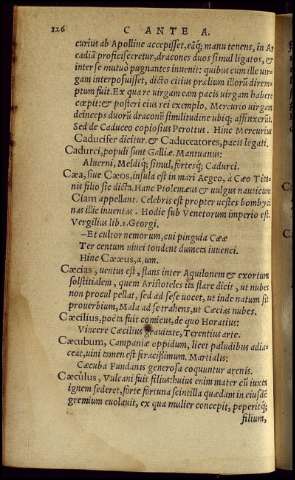 126 C ANTE A.
curius ab Apolline accepisset, eāq; manu tenens, in Ar
cadiā proficisceretur, dracones duos simul ligatos, &
inter se mutuò pugnantes inuenit: quibus cum ille uir-
gam interposuisset, dicto citius prælium illorū direm-
ptum fuit. Ex qua re uirgam eam pacis uirgam habere
cœpit: & posteri eius rei exemplo, Mercurio uirgam
deinceps duorū draconū similitudine ubiq; affinxerūt.
Sed de Caduceo copiosius Perottus. Hinc Mercurius
Caducifer dicitur, & Caduceatores, pacis legati.
Cadurci, populi sunt Galliæ. Mantuanus:
Aluerni, Meldiq; simul, fortesq; Cadurci.
Cæa, siue Cæos, insula est in mari Aegeo, à Cæo Tita-
nis filio sic dicta. Hanc Ptolemæus & uulgus nauticum
Ciam appellant. Celebris est propter uestes bombyci-
nas illic inuentas. Hodie sub Venetorum imperio est.
Vergilius lib. 1. Georgi.
—Et cultor nemorum, cui pinguia Cææ
Ter centum niuei tondent dumeta iuuenci.
Hinc Cæeus, a, um.
Cæcias, uentus est, flans inter Aquilonem & exortum
solstitialem, quem Aristoteles ita flare dicit, ut nubes
non procul pellat, sed ad sese uocet, ut inde natum sit
prouerbium, Mala ad se trahens, ut Cæcias nubes.
Cæcilius, poëta fuit comicus, de quo Horatius:
Vincere Cæcilius grauitate, Terentius arte.
Cæcubum, Campaniæ oppidum, licet paludibus adia-
ceat, uini tamen est feracissimum. Martialis:
Cæcuba Fundanis generosa coquuntur arenis.
Cæcülus, Vulcani fuit filius: huius enim mater cū iuxta
ignem sederet, forte fortuna scintilla quædam in eiusdē
gremium euolauit, ex qua mulier concepit, peperitq;
filium,